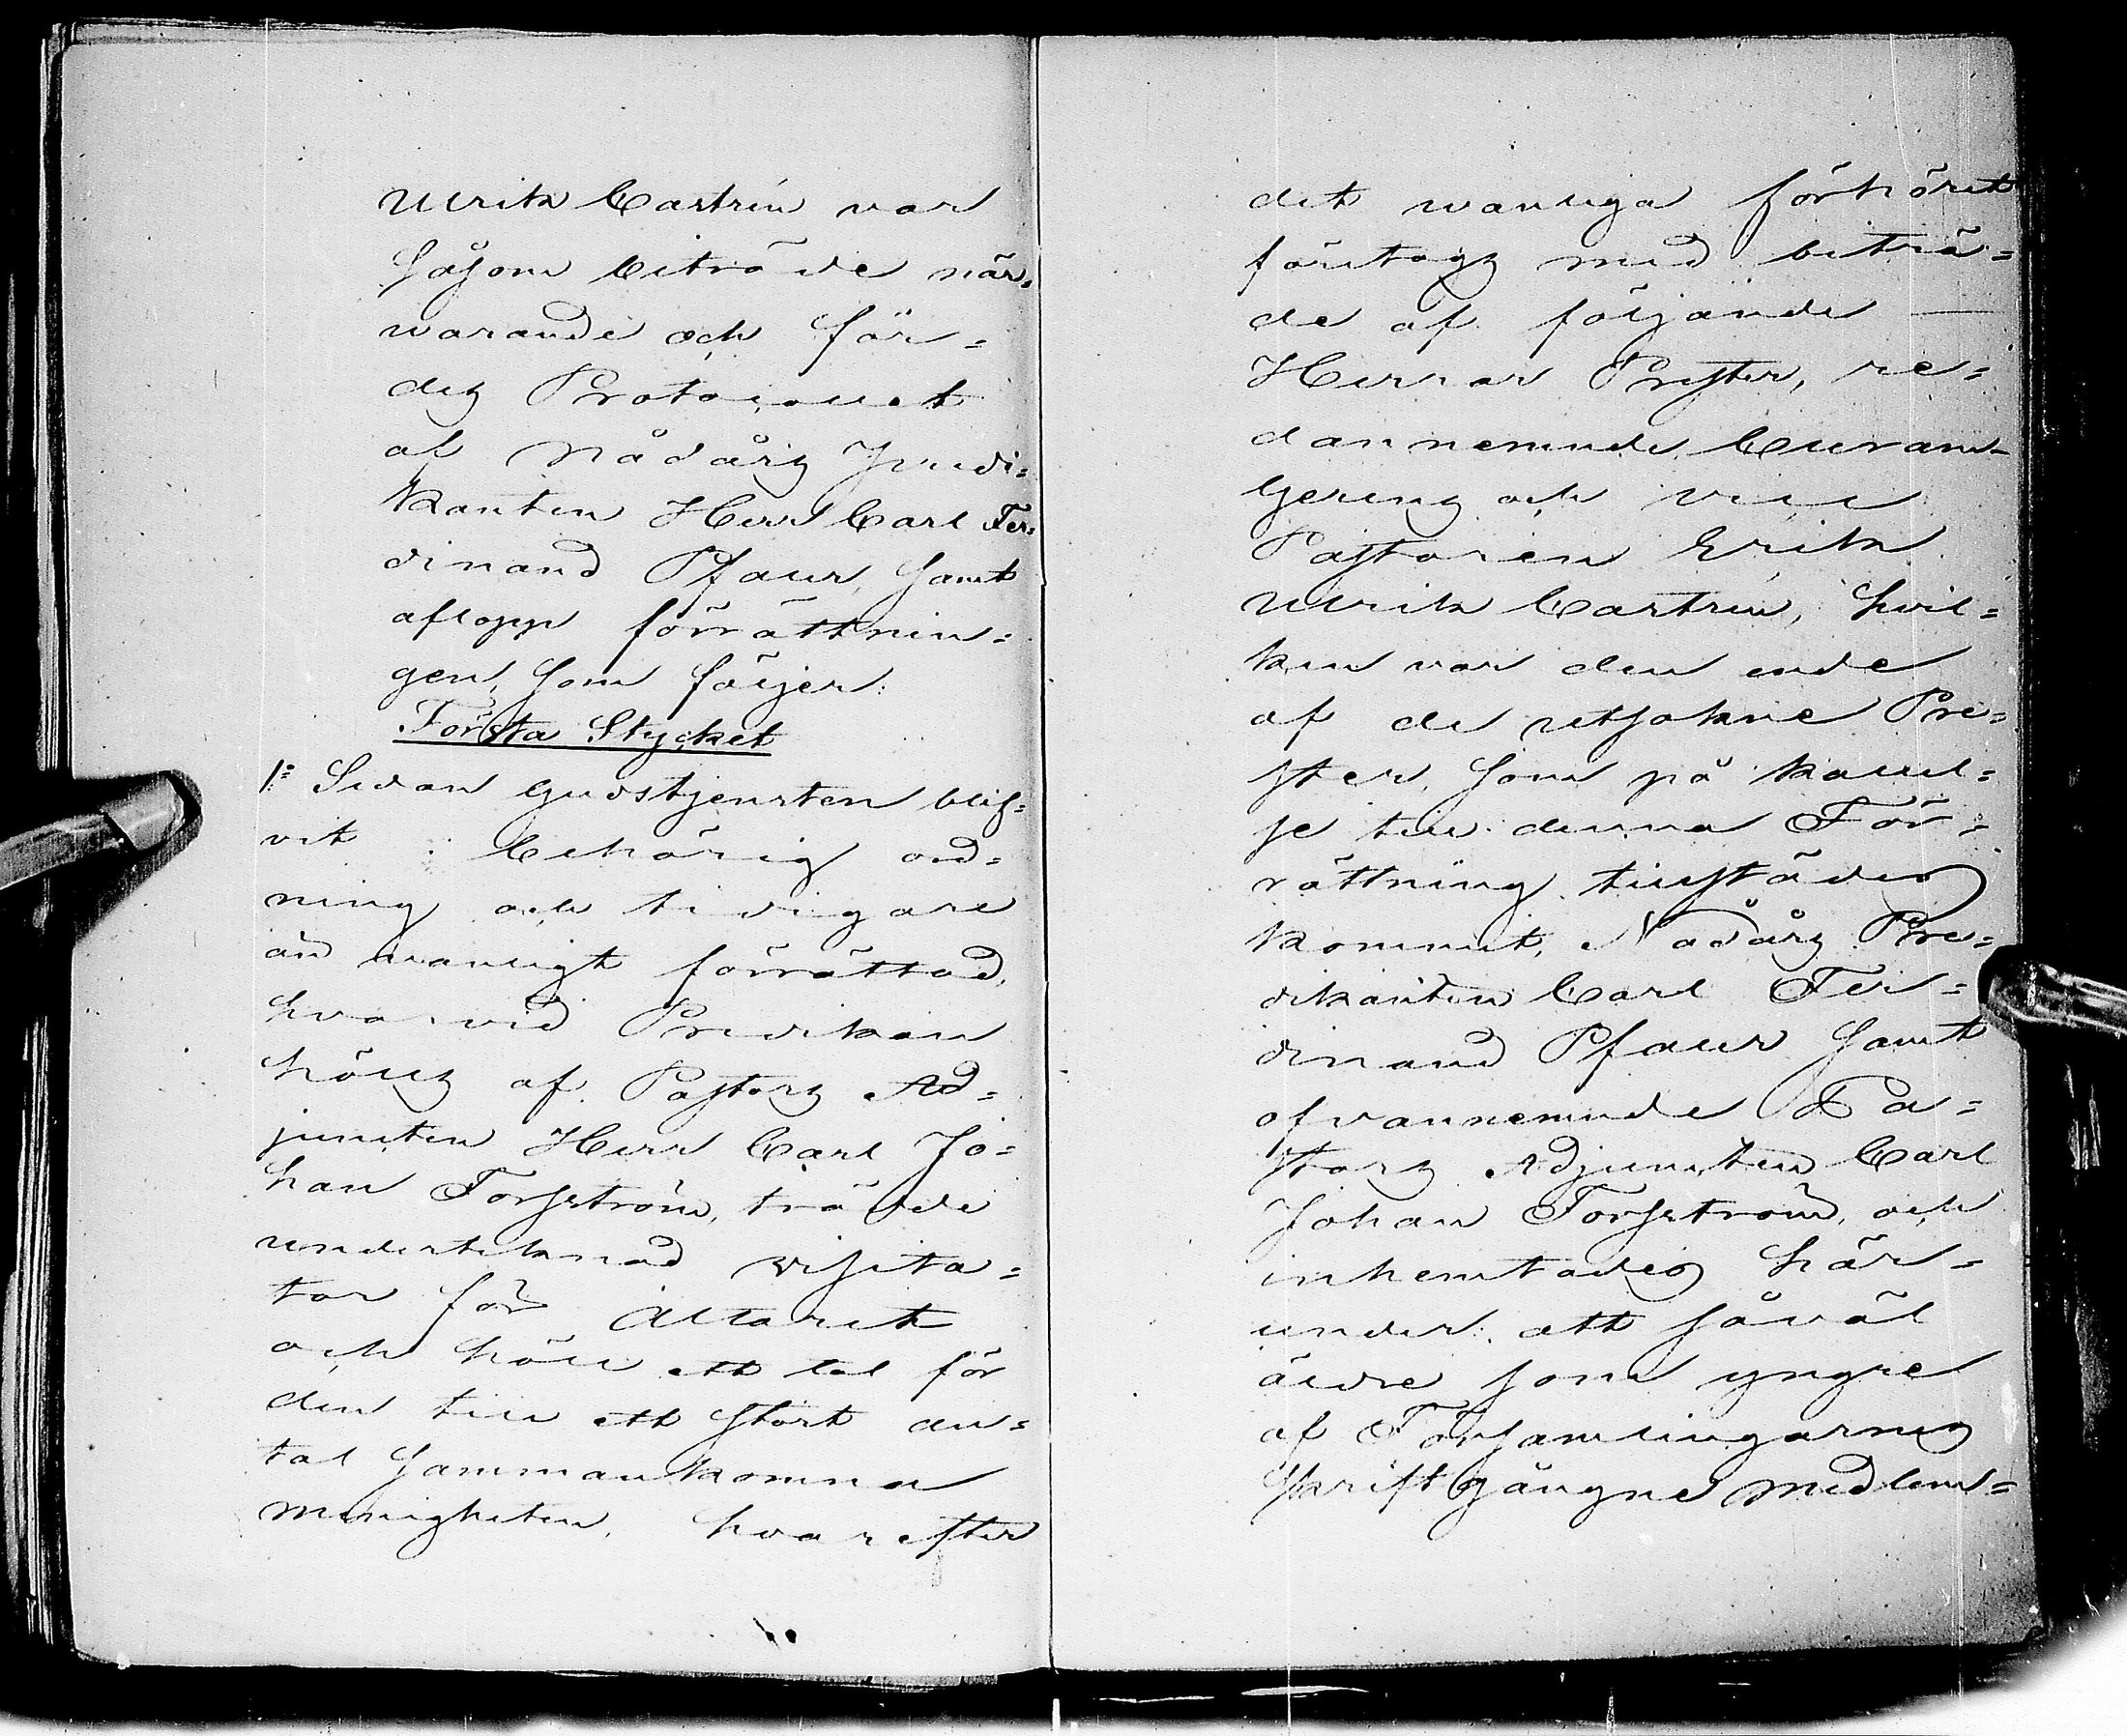 Ulrik Castrén var
såsom biträde när=
warande och för=
des Protocollet
af Nådårs Predi=
kanten Herr Carl Fer=
dinand Pfaler, samt
aflopp förrättnin=
gen, som följer:
Första Stycket
1:o Sedan Gudstjensten blif=
vit i behörig ord=
ning och tidigare
än vanligt förrättad,
hvarvid Predikan
hölls af Pastors Ad=
juncten Herr Carl Jo=
han Forsström, trädde
undertecknad visita=
tor för Altaret
och höll ett tal för
den till ett stort an=
tal sammankomna
menigheten, hvarefter
det wanliga förhöret
företogs med biträ=
de af följande —
Herrar Prester, re=
dannemnde Curam
Gerens och vice
Pastoren Erik
Ulrik Castrén, hvil=
ken var den ende
af de utsokne Pre=
ster, som på kallel=
se till denna För=
rättning tillstädes
kommit, Nådårs Pre=
dikanten Carl Fer=
dinand Pfaler samt
ofvannemnde Pa=
stors Adjuncten Carl
Johan Forsström, och
inhemtades här=
under, att såväl
äldre som yngre
af Församlingarnes
skriftgångne medlem=